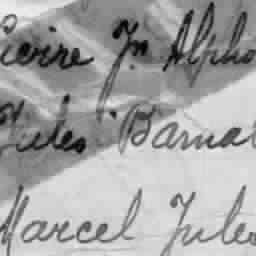 Pierre Jn Alpho
Jules Barnab
Marcel Jules